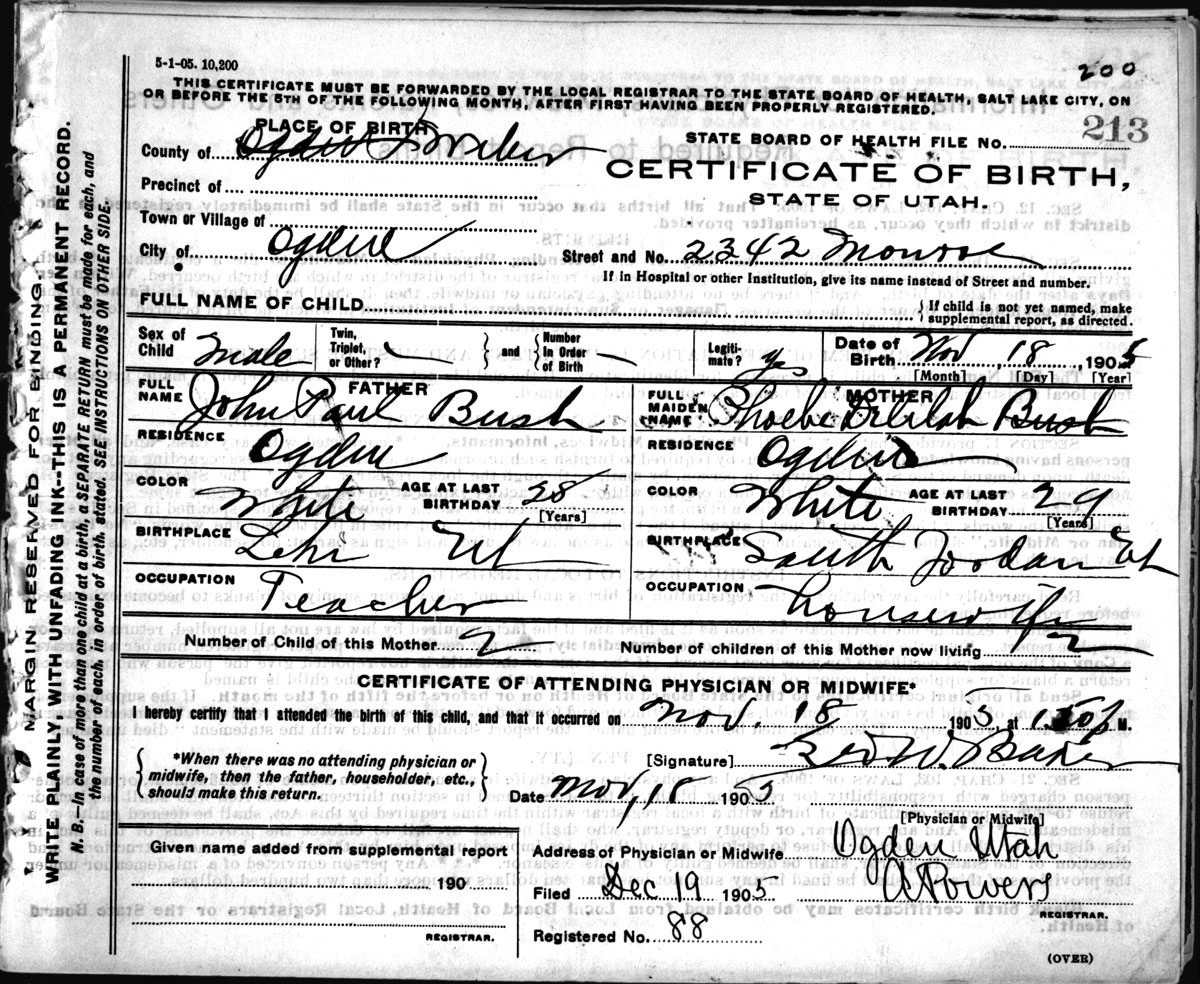 5-1-05. 10,200
200
THIS CERTIFICATE MUST BE FORWARDED BY THE LOCAL REGISTRAR TO THE STATE BOARD OF HEALTH, SALT LAKE CITY, ON
OR BEFORE THE 5TH OF THE FOLLOWING MONTH, AFTER FIRST HAVING BEEN PROPERLY REGISTERED.
213
PLACE OF BIRTH
County of Ogden Weber
Precinct of
Town or Village of
City of Ogden
STATE BOARD OF HEALTH FILE No.
CERTIFICATE OF BIRTH,
STATE OF UTAH.
Street and No. 2342 Monroe
If in Hospital or other Institution, give its name instead of Street and number.
FULL NAME OF CHILD
If child is not yet named, make
supplemental report, as directed.
Sex of Child Male
Twin, Triplet, or Other?
and
Number In Order of Birth
Legitimate? yes
Date of Birth Nov 18 1905
[Month] [Day] [Year]
FATHER
FULL NAME John Paul Bush
RESIDENCE Ogden
COLOR White AGE AT LAST BIRTHDAY 28
[Years]
BIRTHPLACE Lehi Ut
OCCUPATION Teacher
MOTHER
FULL MAIDEN NAME Phoebe Delilah Bush
RESIDENCE Ogden
COLOR White AGE AT LAST BIRTHDAY 29
[Years]
BIRTHPLACE South Jordan Ut
OCCUPATION housewife
Number of Child of this Mother 2
Number of children of this Mother now living 2
CERTIFICATE OF ATTENDING PHYSICIAN OR MIDWIFE*
I hereby certify that I attended the birth of this child, and that it occurred on Nov. 18 1905 at M.
*When there was no attending physician or
midwife, then the father, householder, etc.,
should make this return.
[Signature] Baker
Date Nov, 18 1905
[Physician or Midwife]
Given name added from supplemental report
190
REGISTRAR.
Address of Physician or Midwife Ogden Utah
Filed Dec 19 1905 Powers
REGISTRAR.
Registered No. 88
(OVER)
MARGIN RESERVED FOR BINDING.
WRITE PLAINLY, WITH UNFADING INK--THIS IS A PERMANENT RECORD.
N. B.—In case of more than one child at a birth, a SEPARATE RETURN must be made for each, and
the number of each, in order of birth, stated. SEE INSTRUCTIONS ON OTHER SIDE.